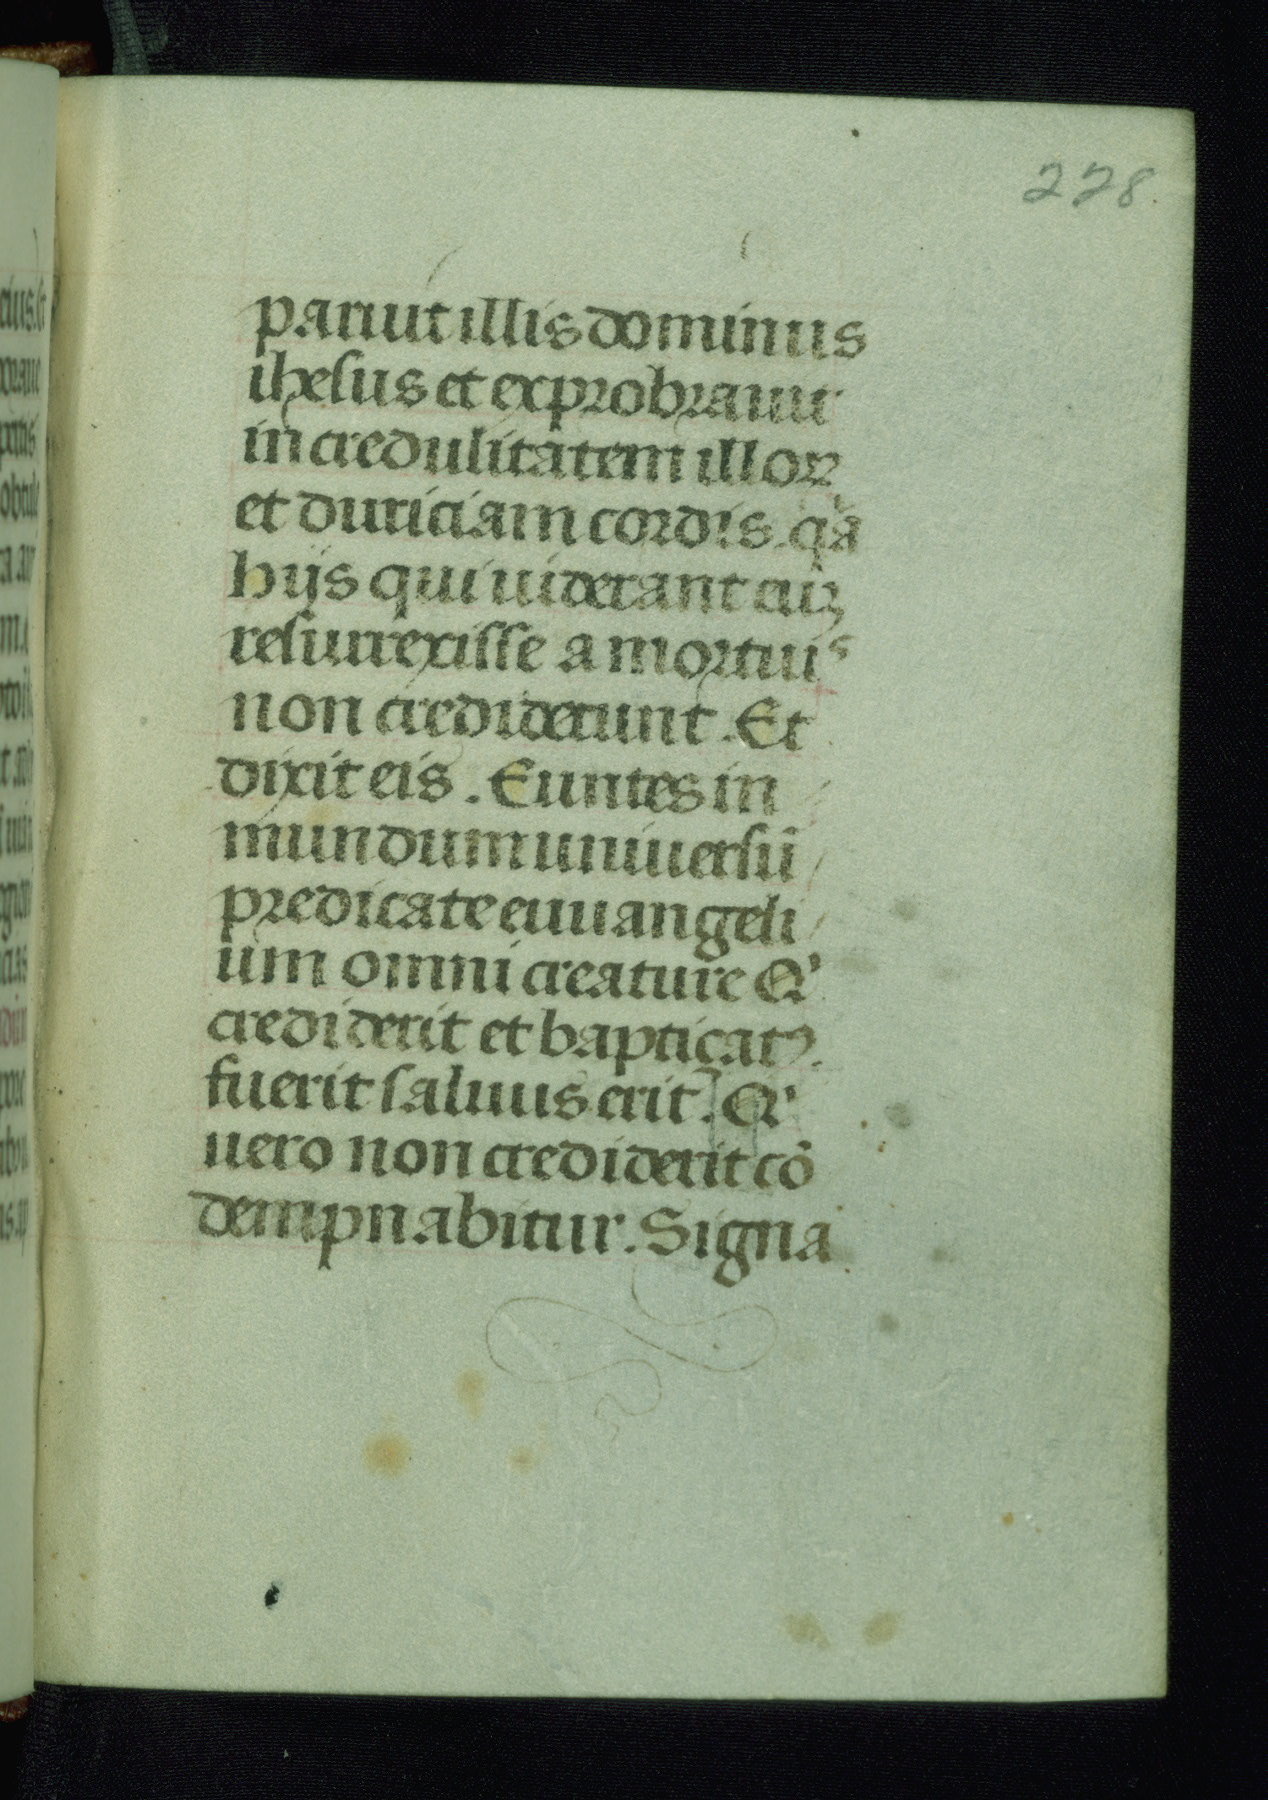 228.
paruit illis dominus
ihesus et exprobrauit
incredulitatem illoꝝ
et duriciam cordis. qͥa
hijs qui uiderant euꝫ
resurrexisse a mortuiˢ
non crediderunt. Et
dixit eis. Euntes in
mundum uniuersũ
predicate euuangeli
um omni creature Qͥ
crediderit et bapticatꝰ.
fuerit saluus erit. Qͥ
uero non crediderit cõ
dempnabitur. Signa